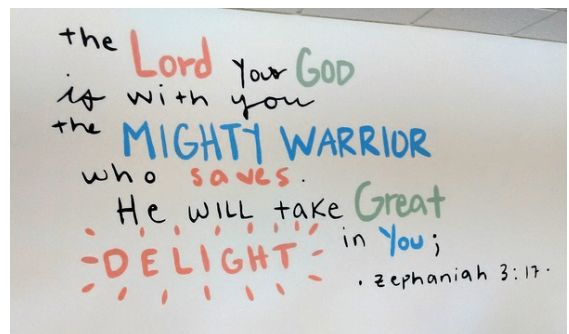 the Lord your GOD
is with you
the MIGHTY WARRIOR
who saves.
He WILL take Great
DELIGHT in You;
. Zephaniah 3:17.